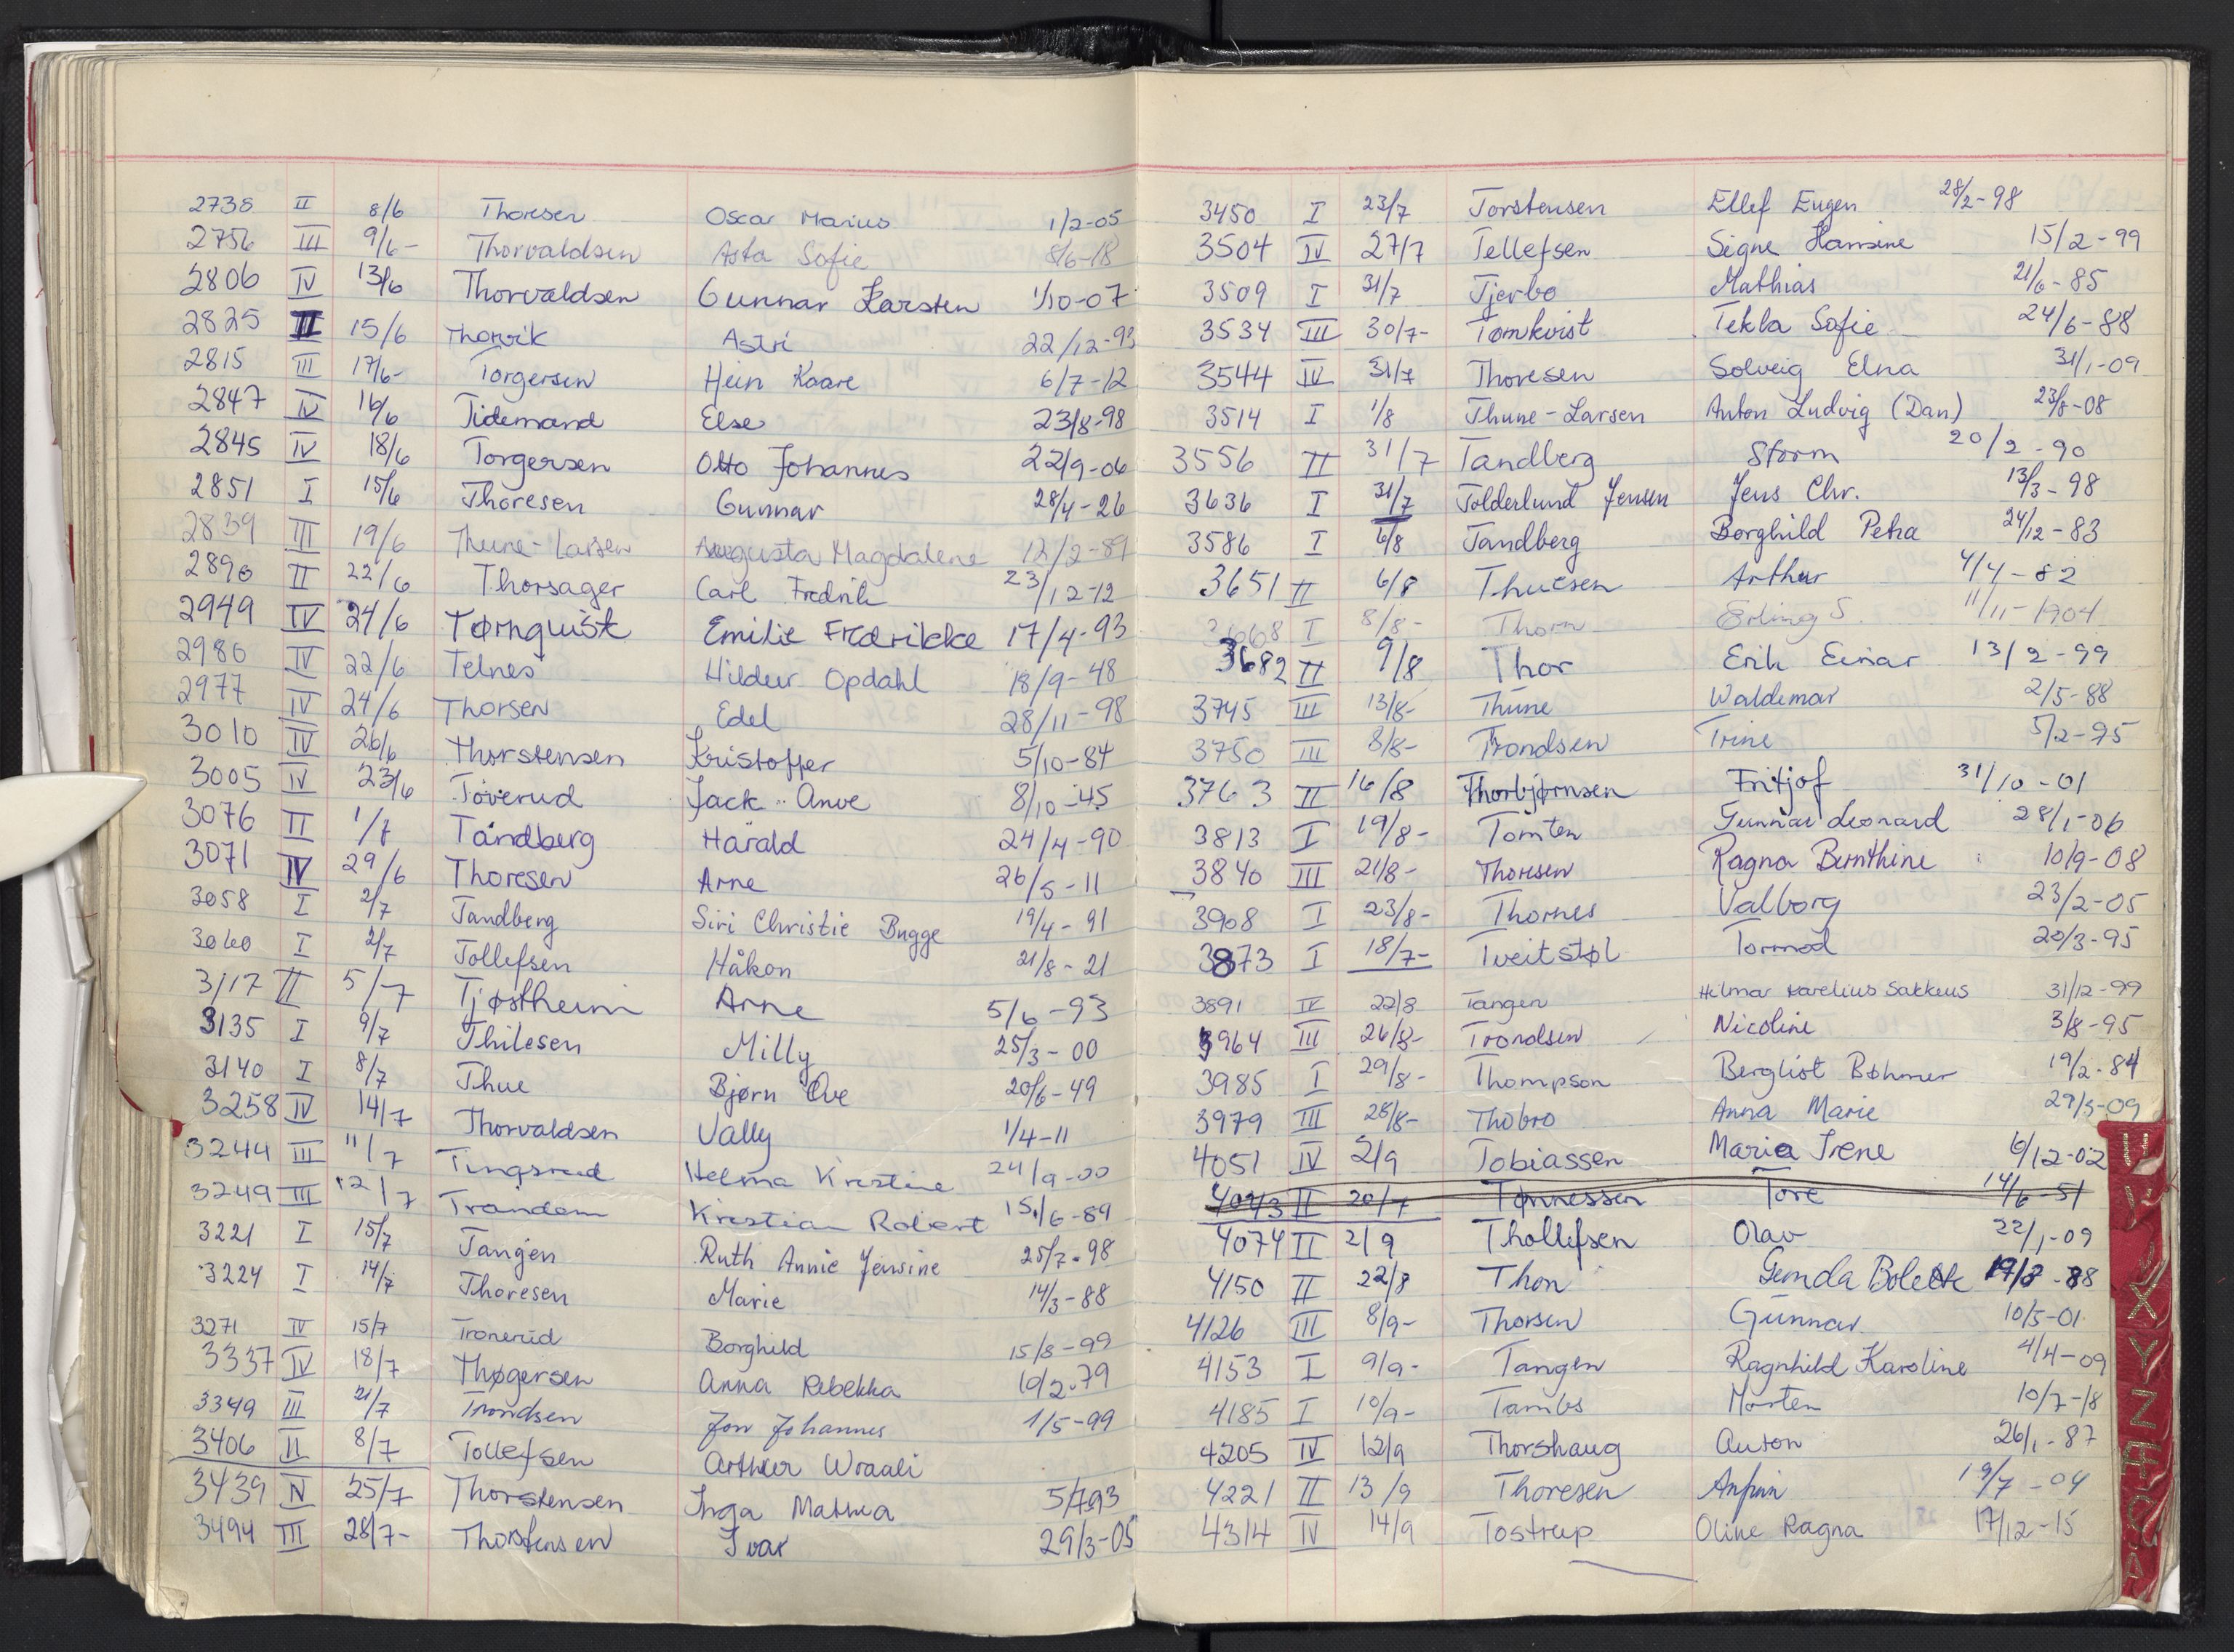 2738 II 8/6 Thoresen Oscar Marius 1/2-05
2756 III 9/6- Thorvaldsen Asta Sofie 8/6-18
2806 IV 13/6 Thorvaldsen Gunnar Karsten 1/10-07
2825 II 15/6 Thorvik Astri 22/12-93
2815 III 17/6- Torgersen Hein Kaare 6/7-12
2847 IV 16/6 Tidemand Else 23/8-98
2845 IV 18/6 Torgersen Otto Johannes 22/9-06
2851 I 15/6 Thoresen Gunnar 28/4-26
2839 III 19/6 Thune-Larsen Augusta Magdalene 12/2-89
2890 II 22/6 Thorsager Carl Fredrik 23/12-12
2949 IV 24/6 Tørnquist Emilie Fredrikke 17/4-93
2980 IV 22/6 Telnes Hildur Opdahl 18/9-48
2977 IV 24/6 Thorsen Edel 28/11-98
3010 IV 26/6 Thorstensen Kristoffer 5/10-84
3005 IV 23/6 Toverud Jack Anve 8/10-45
3076 II 1/7 Tandberg Harald 24/4-90
3071 IV 29/6 Thoresen Arne 26/5-11
3058 I 2/7 Tandberg Siri Christie Bugge 19/4-91
3060 I 2/7 Tollefsen Håkon 21/8-21
3117 II 5/7 Tjøstheim Arne 5/6-93
3135 I 9/7 Thilesen Milly 25/3-00
3140 I 8/7 Thue Bjørn Ove 20/6-49
3258 IV 14/7 Thorvaldsen Vally 1/4-11
3244 III 11/7 Tingsrud Helma Kristine 24/9-00
3249 III 12/7 Trandem Kristian Robert 15/6-89
3221 I 15/7 Tangen Ruth Annie Jensine 25/7-98
3224 I 14/7 Thoresen Marie 14/3-88
3271 IV 15/7 Tronerud Borghild 15/8-99
3337 IV 18/7 Thøgersen Anna Rebekka 10/2-79
3349 III 21/7 Trondsen Jon Johannes 1/5-99
3406 II 8/7 Tollefsen Arthur Wraali
3439 IV 25/7 Thorstensen Inga Mathea 5/7 93
3494 III 28/7- Thorstensen Ivar 29/3-05
3450 I 23/7 Torstensen Ellef Eugen 28/2-98
3504 IV 27/7 Tellefsen Signe Hansine 15/2-99
3509 I 31/7 Tjerbo Mathias 21/6-85
3534 III 30/7- Tornkvist Tekla Sofie 24/6-88
3544 IV 31/7 Thoresen Solveig Elna 31/1-09
3514 I 1/8 Thune-Larsen Anton Ludvig (Dan) 23/8-08
3556 II 31/7 Tandberg Storm 20/2-90
3636 I 31/7 Tolderlund Jensen Jens Chr. 13/3-98
3586 I 6/8 Tandberg Borghild Petra 24/12-83
3651 II 6/8 Thuesen Arthur 4/4-82
3668 I 8/8- Thorn Erling S. 11/11-1904
3682 II 9/8 Thor Erik Einar 13/2-99
3745 III 13/8- Thune Waldemar 2/5-88
3750 III 8/8- Trondsen Trine 5/2-95
3763 II 16/8 Thorbjørnsen Fritjof 31/10-01
3813 I 19/8- Tomten Gunnar Leonard 28/1-06
3840 III 21/8- Thoresen Ragna Bernthine 10/9-08
3908 I 23/8- Thornes Valborg 23/2-05
3873 I 18/7- Tveitstøl Tormod 20/3-95
3891 IV 22/8 Tangen Hilmar Karelius Sakkeus 31/12-99
3964 III 26/8- Trondsen Nicoline 3/8-95
3985 I 29/8- Thompson Bergliot Bøhmer 19/2-84
3979 III 28/8- Thobro Anna Marie 29/3-09
4051 IV 2/9 Tobiassen Maria Irene 6/12-02
4043 II 20/7 Tønnessen Tore 14/6-51
4074 II 2/9 Thollefsen Olav 22/1-09
4150 II 22/8 Thon Gemda Bolette 19/8-88
4126 III 8/9- Thorsen Gunnar 10/5-01
4153 I 9/9- Tangen Ragnhild Karoline 4/4-09
4185 I 10/9- Tambs Morten 10/7-18
4205 IV 12/9 Thorshaug Anton 26/1-87
4221 II 13/9 Thoresen Anfinn 19/7-04
4314 IV 14/9 Tostrup Oline Ragna 17/12-15
X
Y
Z